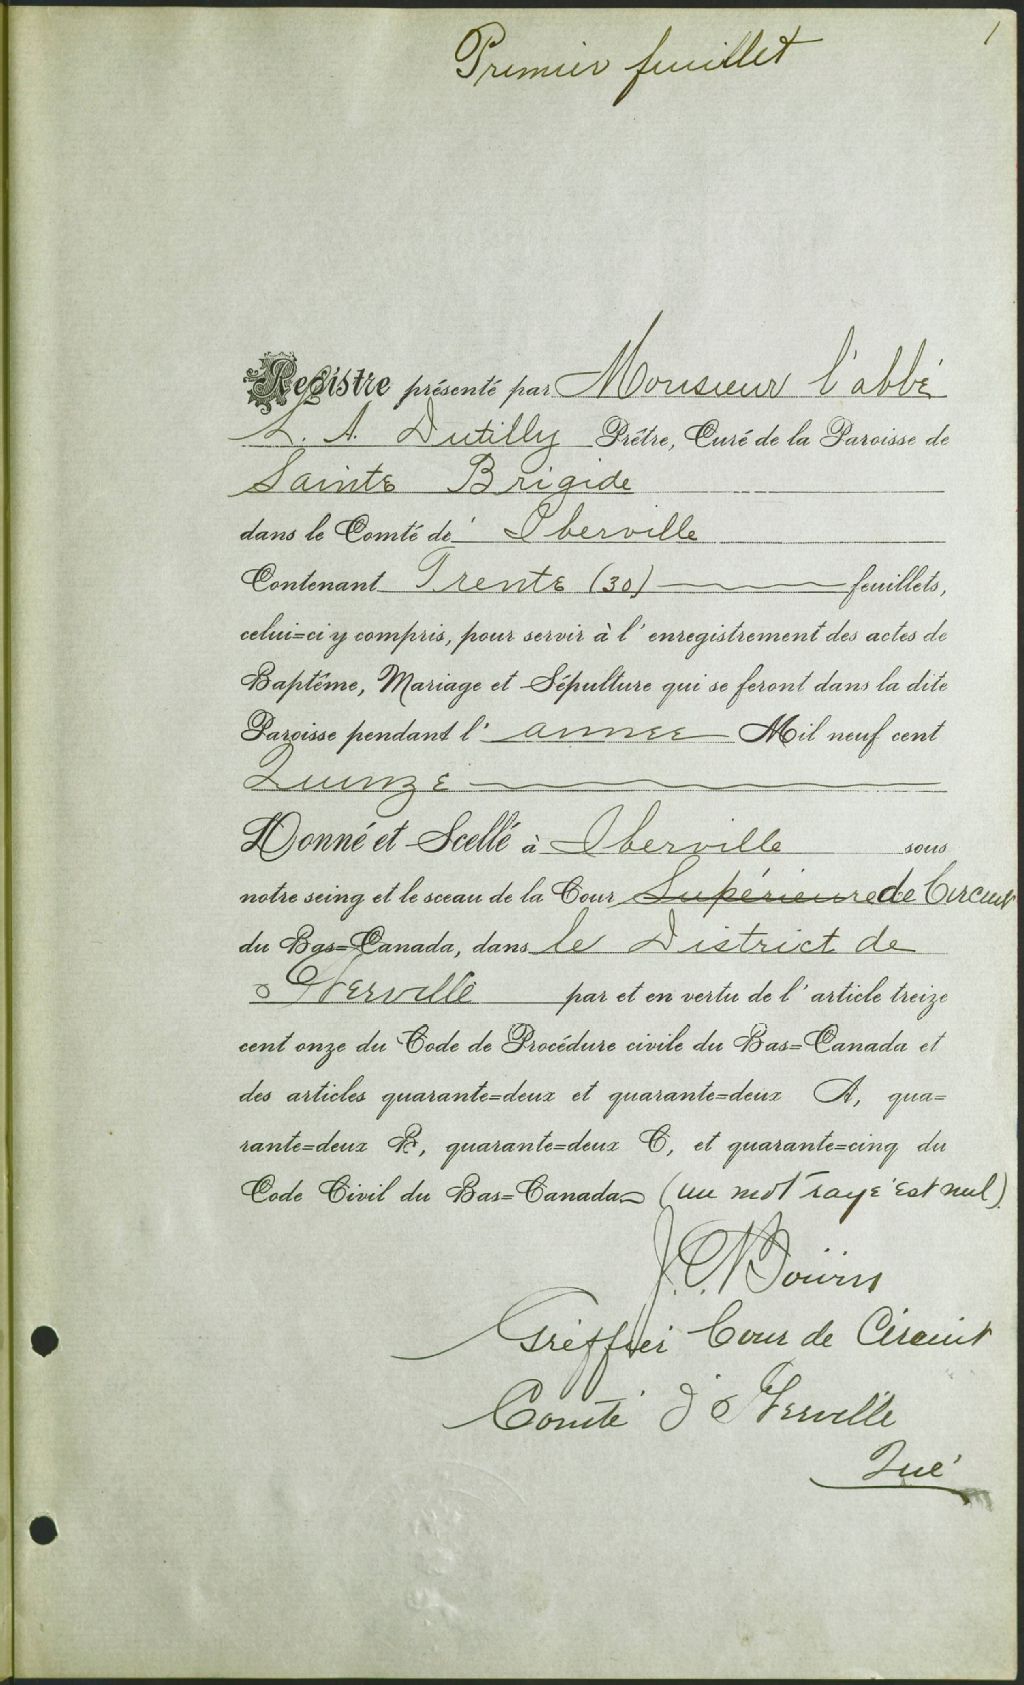 1
Premier feuillet
Registre présenté par Monsieur l'abbé
L. A. Dutilly Prêtre, Curé de la Paroisse de
Sainte Brigide
dans le Comté de Iberville
Contenant Trente (30) feuillets,
celui=ci y compris, pour servir à l'enregistrement des actes de
Baptême, Mariage et Sépulture qui se feront dans la dite
Paroisse pendant l'année Mil neuf cent
Quinze
Donné et Scellé à Iberville sous
notre seing et le sceau de la Cour Supérieure de Circuit
du Bas=Canada, dans le District de
Iberville par et en vertu de l'article treize
cent onze du Code de Procédure civile du Bas=Canada et
des articles quarante=deux et quarante=deux A, qua=
rante=deux B, quarante=deux C, et quarante=cinq du
Code Civil du Bas=Canada (un mot rayé est nul).
Greffier Cour de Circuit
Comté d'Iberville
Qué